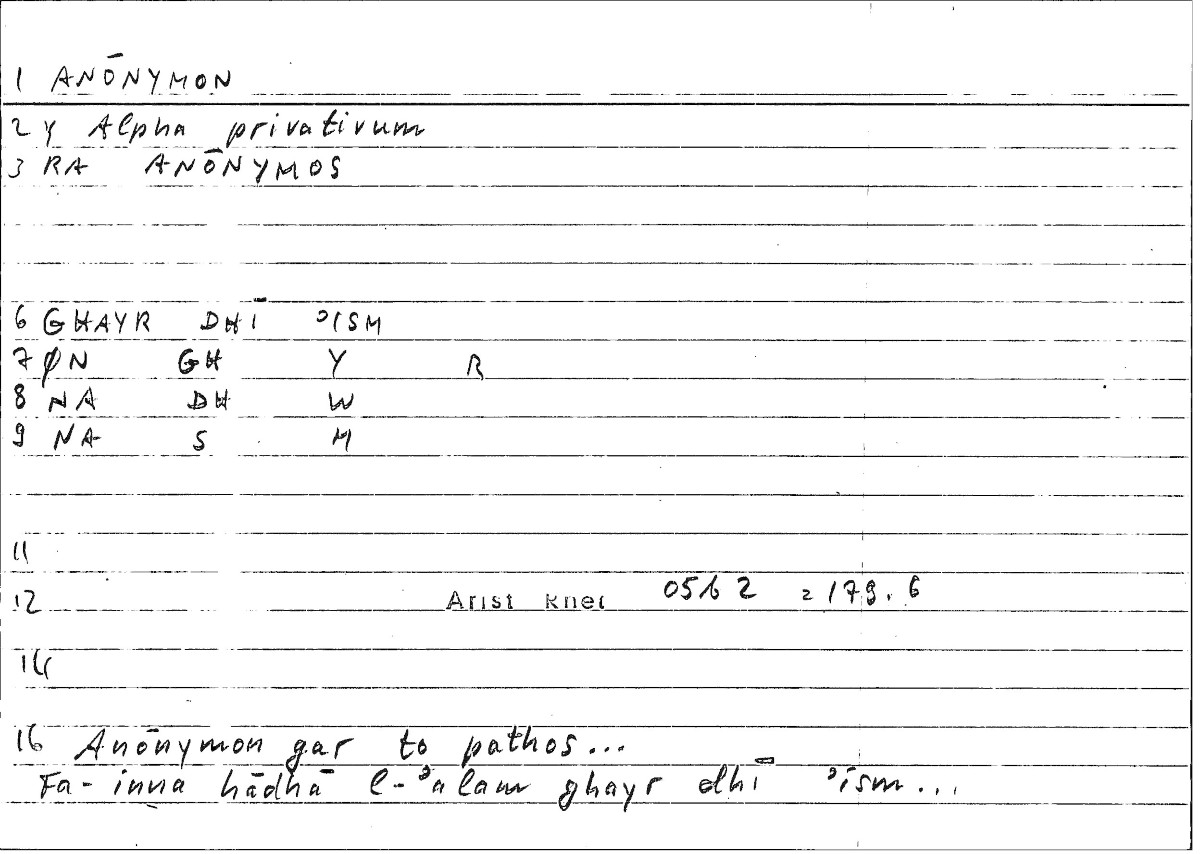 1 ANŌNYMON
2 Y Alpha privativum
3 RA ANŌNYMOS
6 GHAYR DHĪ ʾISM
7 ØN GH Y R
8 NA DH W
9 NA S M
11
12 Arist Rhet 0562 = 179.6
14
16 Anōnymon gar to pathos...
Fa-inna hādhā l-ʾalam ghayr dhī ʾism...